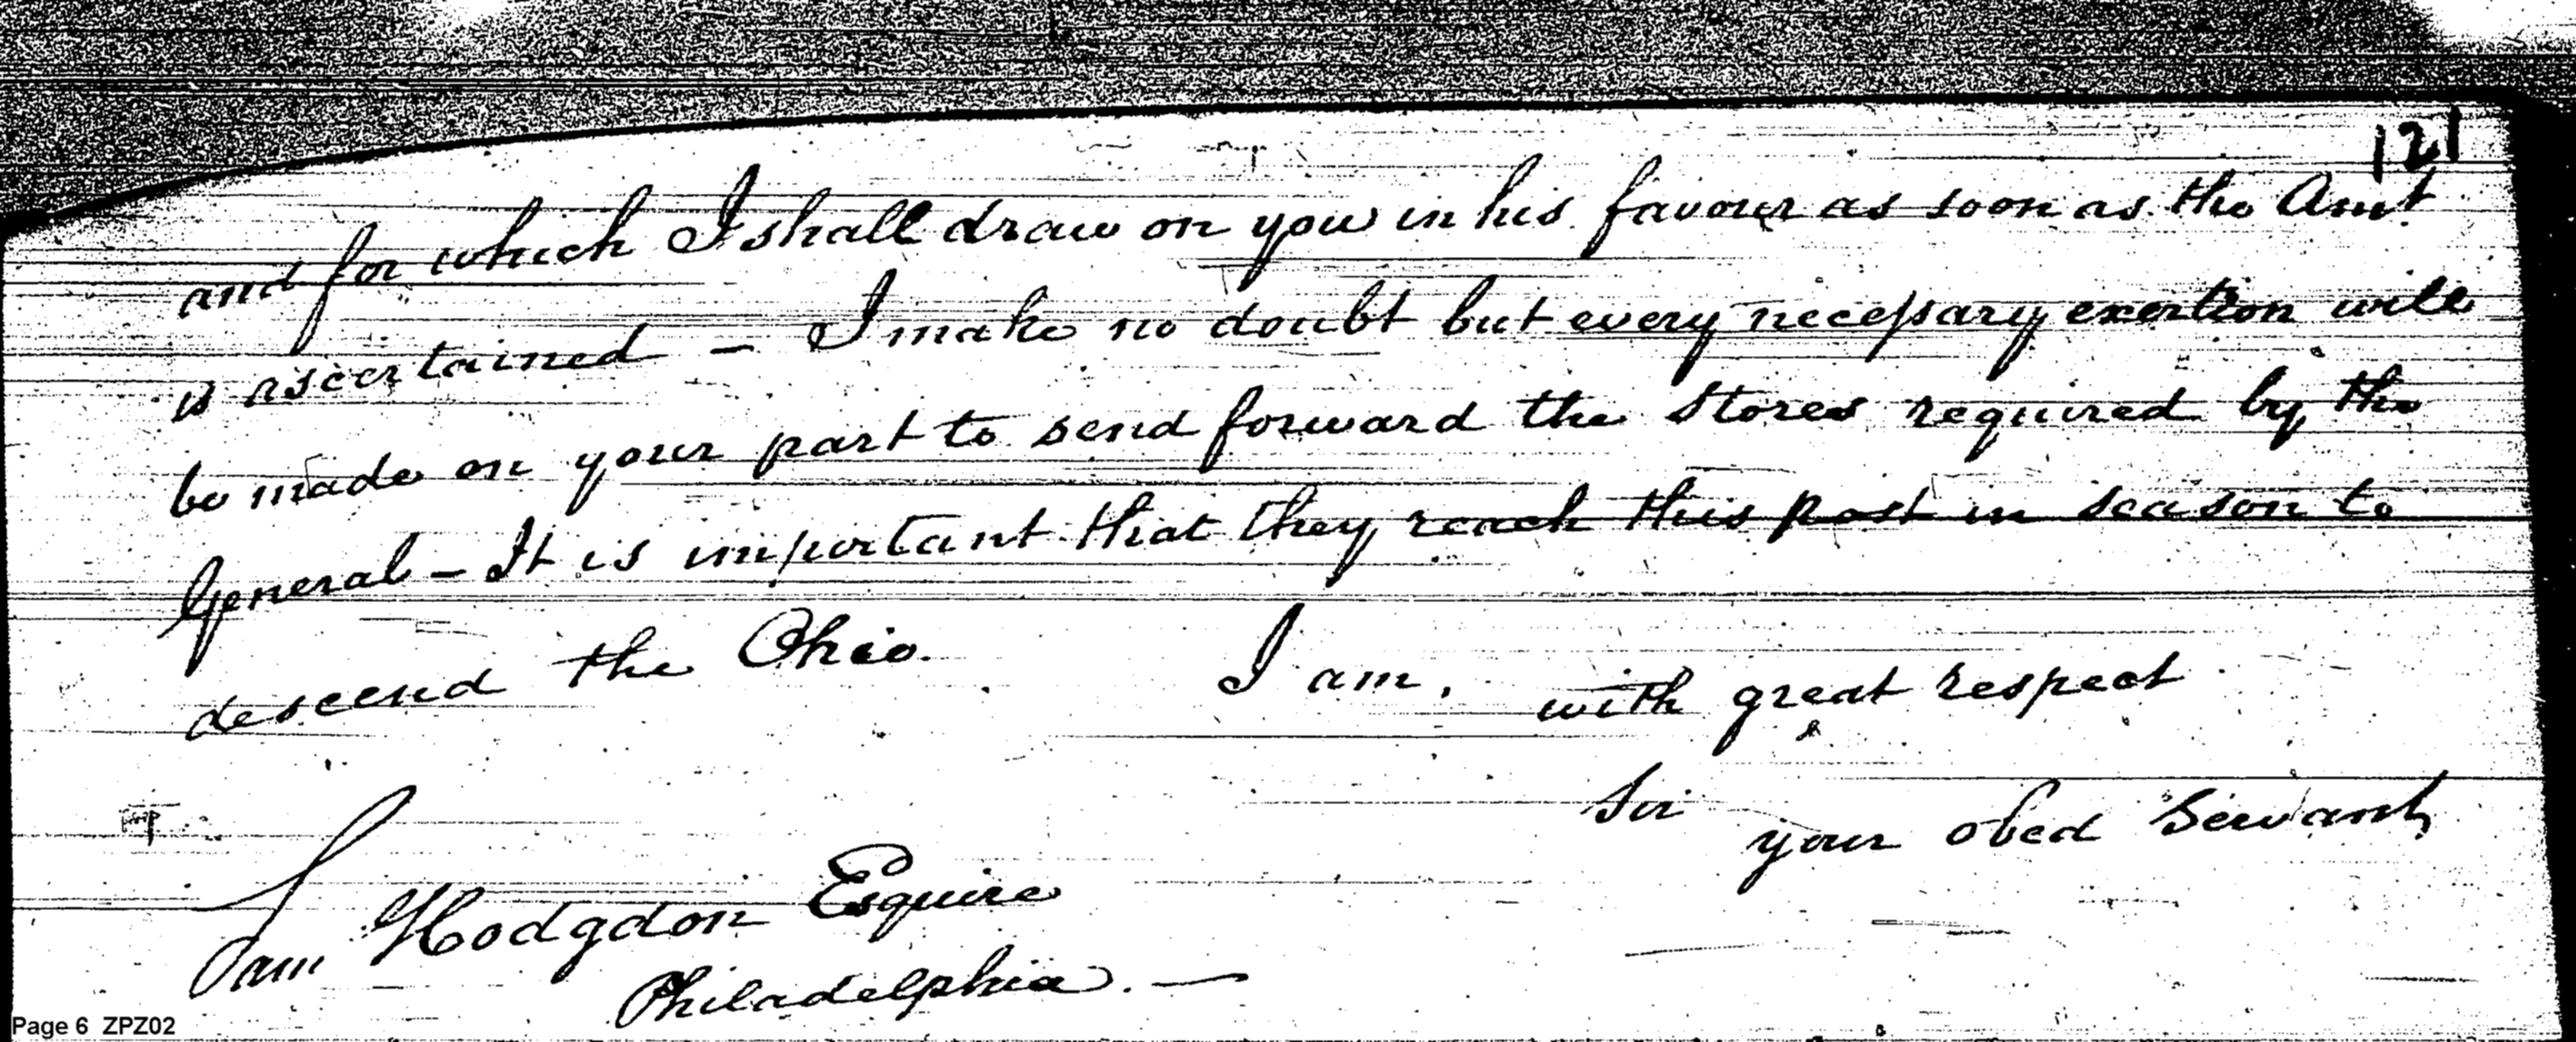 121
and for which I shall draw on you in his favour as soon as the Amt
is ascertained – I make no doubt but every necessary exertion will
be made on your part to send forward the Stores required by the
General – It is important that they reach this post in season to
descend the Ohio.
I am, with great respect
Sir
your obed Servant,
Sam Hodgdon Esquire
Philadelphia. —
Page 6 ZPZ02